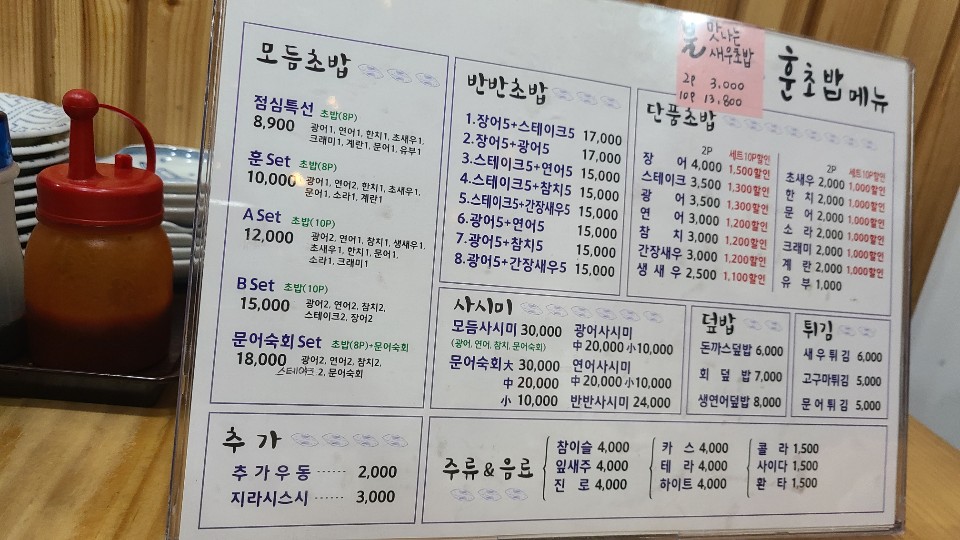 훈초밥 메뉴
불 맛나는
새우초밥
2P 3,000
10P 13,800
모듬초밥
점심특선 초밥(8P)
8,900 광어1, 연어1, 한치1, 초새우1,
크래미1, 계란1, 문어1, 유부1
훈 Set 초밥(8P)
10,000 광어1, 연어2, 한치1, 초새우1,
문어1, 소라1, 계란1
A Set 초밥(10P)
12,000 광어2, 연어1, 참치1, 생새우1,
초새우1, 한치1, 문어1,
소라1, 크래미1
B Set 초밥(10P)
15,000 광어2, 연어2, 참치2,
스테이크2, 장어2
문어숙회 Set 초밥(8P)+문어숙회
18,000 광어2, 연어2, 참치2,
스테이크 2, 문어숙회
반반초밥
1.장어5+스테이크5 17,000
2.장어5+광어5 17,000
3.스테이크5+연어5 15,000
4.스테이크5+참치5 15,000
5.스테이크5+간장새우5 15,000
6.광어5+연어5 15,000
7.광어5+참치5 15,000
8.광어5+간장새우5 15,000
단품초밥
2P 세트10P할인
장 어 4,000 1,500할인
스테이크 3,500 1,300할인
광 어 3,500 1,300할인
연 어 3,000 1,200할인
참 치 3,000 1,200할인
간장새우 3,000 1,200할인
생 새 우 2,500 1,100할인
2P 세트10P할인
초새우 2,000 1,000할인
한 치 2,000 1,000할인
문 어 2,000 1,000할인
소 라 2,000 1,000할인
크래미 2,000 1,000할인
계 란 2,000 1,000할인
유 부 1,000
사시미
모듬사시미 30,000
(광어, 연어, 참치, 문어숙회)
문어숙회 大 30,000
中 20,000
小 10,000
광어사시미
中 20,000 小 10,000
연어사시미
中 20,000 小 10,000
반반사시미 24,000
덮밥
돈까스덮밥 6,000
회 덮 밥 7,000
생연어덮밥 8,000
튀김
새 우 튀 김 6,000
고구마튀김 5,000
문 어 튀 김 5,000
추 가
추 가 우 동 ······ 2,000
지라시스시 ······ 3,000
주류 & 음료
참이슬 4,000
잎새주 4,000
진 로 4,000
카 스 4,000
테 라 4,000
하이트 4,000
콜 라 1,500
사이다 1,500
환 타 1,500